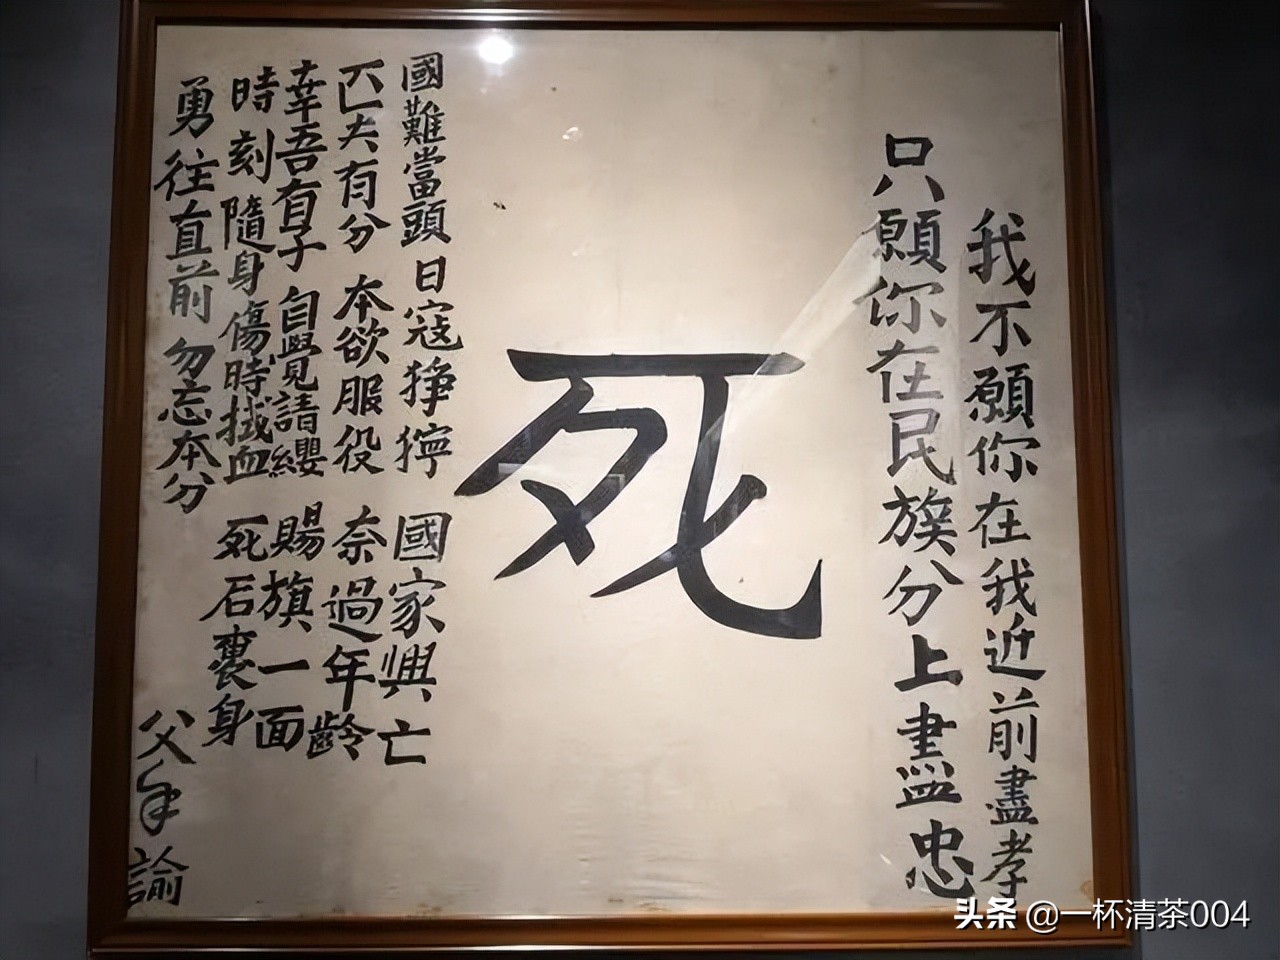 我不願你在我近前盡孝
只願你在民族分上盡忠
死
國難當頭 日寇猙獰 國家興亡
匹夫有分 本欲服役 奈過年齡
幸吾有子 自覺請纓 賜旗一面
時刻隨身 傷時拭血 死后裹身
勇往直前 勿忘本分
父手諭
头条 @一杯清茶004